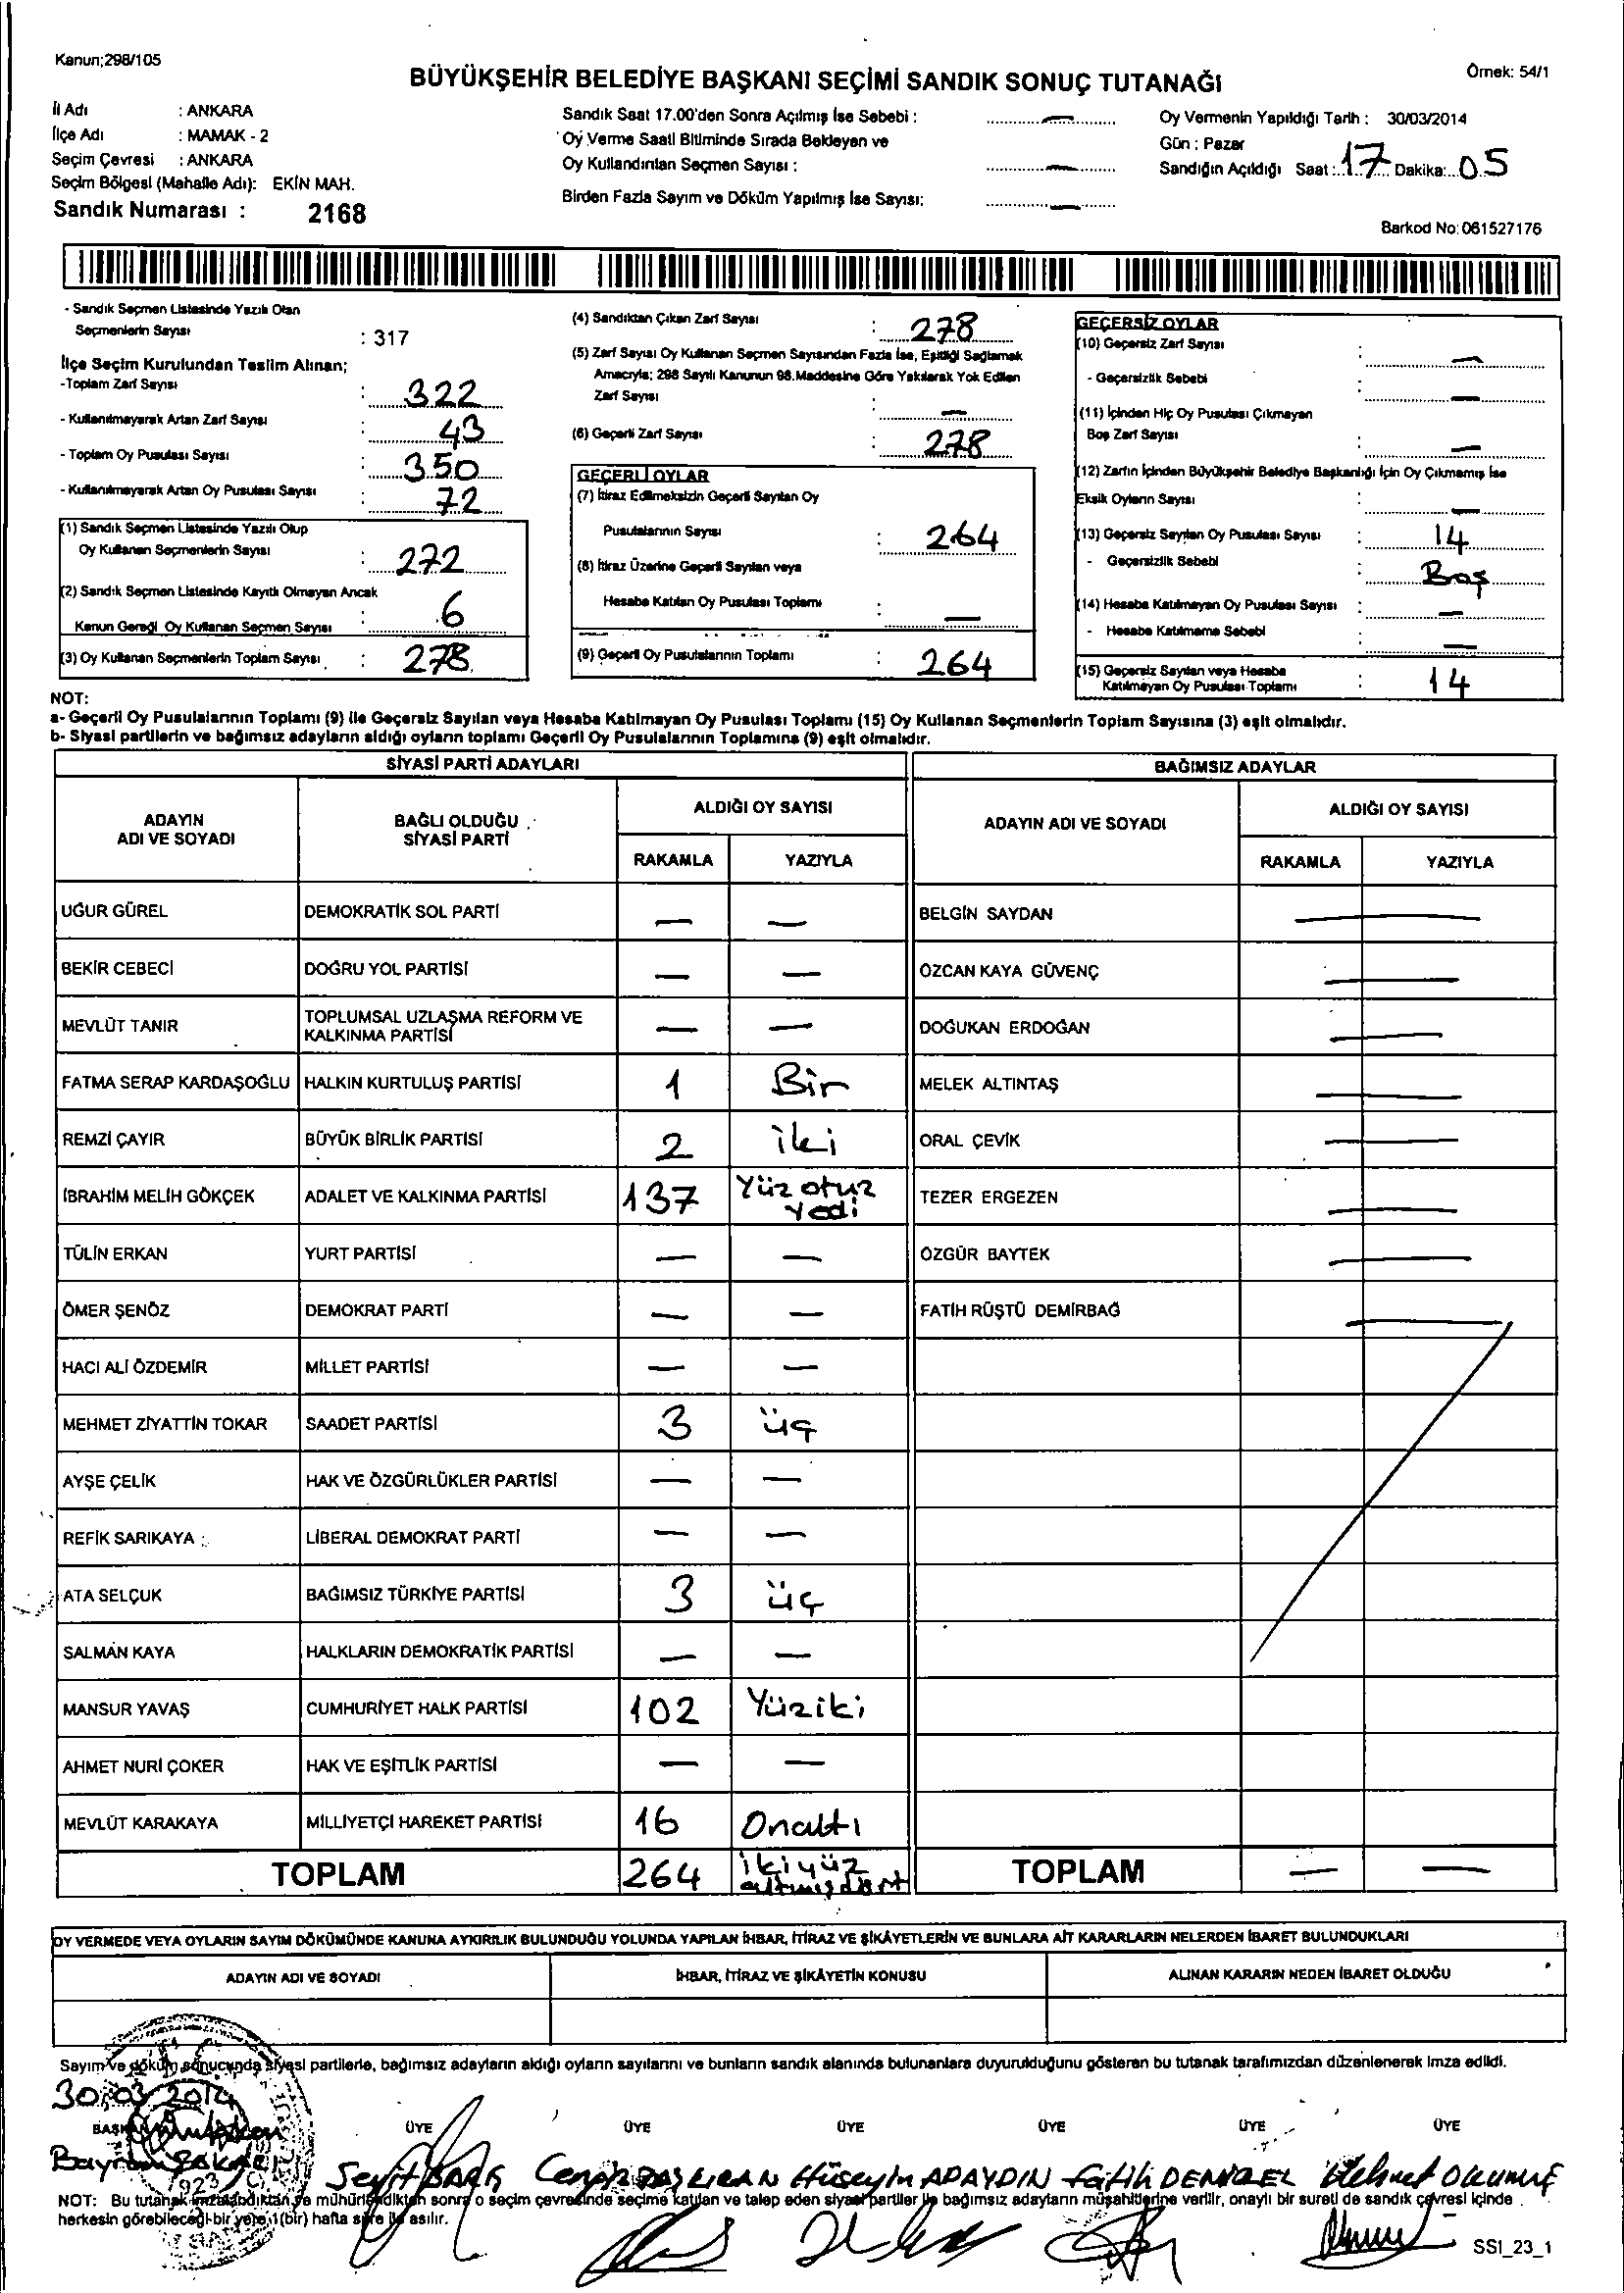 Kanun;298/105
Örnek: 54/1
BÜYÜKŞEHİR BELEDİYE BAŞKANI SEÇİMİ SANDIK SONUÇ TUTANAĞI
İl Adı : ANKARA
İlçe Adı : MAMAK - 2
Seçim Çevresi : ANKARA
Seçim Bölgesi (Mahalle Adı): EKİN MAH.
Sandık Numarası : 2168
Sandık Saat 17.00'den Sonra Açılmış İse Sebebi : —
Oy Verme Saati Bitiminde Sırada Bekleyen ve
Oy Kullandırılan Seçmen Sayısı : —
Birden Fazla Sayım ve Döküm Yapılmış İse Sayısı: —
Oy Vermenin Yapıldığı Tarih : 30/03/2014
Gün : Pazar
Sandığın Açıldığı Saat : 17 Dakika: 05
Barkod No: 061527176
- Sandık Seçmen Listesinde Yazılı Olan
Seçmenlerin Sayısı : 317
İlçe Seçim Kurulundan Teslim Alınan;
-Toplam Zarf Sayısı : 322
- Kullanılmayarak Artan Zarf Sayısı : 43
- Toplam Oy Pusulası Sayısı : 350
- Kullanılmayarak Artan Oy Pusulası Sayısı : 72
(1) Sandık Seçmen Listesinde Yazılı Olup
Oy Kullanan Seçmenlerin Sayısı : 272
(2) Sandık Seçmen Listesinde Kayıtlı Olmayan Ancak
Kanun Gereği Oy Kullanan Seçmen Sayısı : 6
(3) Oy Kullanan Seçmenlerin Toplam Sayısı : 278
(4) Sandıktan Çıkan Zarf Sayısı : 278
(5) Zarf Sayısı Oy Kullanan Seçmen Sayısından Fazla İse, Eşitliği Sağlamak
Amacıyla; 298 Sayılı Kanunun 98.Maddesine Göre Yakılarak Yok Edilen
Zarf Sayısı : —
(6) Geçerli Zarf Sayısı : 278
GEÇERLİ OYLAR
(7) İtiraz Edilmeksizin Geçerli Sayılan Oy
Pusulalarının Sayısı : 264
(8) İtiraz Üzerine Geçerli Sayılan veya
Hesaba Katılan Oy Pusulası Toplamı : —
(9) Geçerli Oy Pusulalarının Toplamı : 264
GEÇERSİZ OYLAR
(10) Geçersiz Zarf Sayısı : —
- Geçersizlik Sebebi : —
(11) İçinden Hiç Oy Pusulası Çıkmayan
Boş Zarf Sayısı : —
(12) Zarfın İçinden Büyükşehir Belediye Başkanlığı İçin Oy Çıkmamış İse
Eksik Oyların Sayısı : —
(13) Geçersiz Sayılan Oy Pusulası Sayısı : 14
- Geçersizlik Sebebi : Boş
(14) Hesaba Katılmayan Oy Pusulası Sayısı : —
- Hesaba Katılmama Sebebi : —
(15) Geçersiz Sayılan veya Hesaba
Katılmayan Oy Pusulası Toplamı : 14
NOT:
a- Geçerli Oy Pusulalarının Toplamı (9) ile Geçersiz Sayılan veya Hesaba Katılmayan Oy Pusulası Toplamı (15) Oy Kullanan Seçmenlerin Toplam Sayısına (3) eşit olmalıdır.
b- Siyasi partilerin ve bağımsız adayların aldığı oyların toplamı Geçerli Oy Pusulalarının Toplamına (9) eşit olmalıdır.
SİYASİ PARTİ ADAYLARI
BAĞIMSIZ ADAYLAR
ADAYIN ADI VE SOYADI
BAĞLI OLDUĞU SİYASİ PARTİ
ALDIĞI OY SAYISI
RAKAMLA YAZIYLA
ADAYIN ADI VE SOYADI
ALDIĞI OY SAYISI
RAKAMLA YAZIYLA
UĞUR GÜREL DEMOKRATİK SOL PARTİ — — BELGİN SAYDAN —
BEKİR CEBECİ DOĞRU YOL PARTİSİ — — ÖZCAN KAYA GÜVENÇ —
MEVLÜT TANIR TOPLUMSAL UZLAŞMA REFORM VE KALKINMA PARTİSİ — — DOĞUKAN ERDOĞAN —
FATMA SERAP KARDAŞOĞLU HALKIN KURTULUŞ PARTİSİ 1 Bir MELEK ALTINTAŞ —
REMZİ ÇAYIR BÜYÜK BİRLİK PARTİSİ 2 iki ORAL ÇEVİK —
İBRAHİM MELİH GÖKÇEK ADALET VE KALKINMA PARTİSİ 137 Yüz otuz yedi TEZER ERGEZEN —
TÜLİN ERKAN YURT PARTİSİ — — ÖZGÜR BAYTEK —
ÖMER ŞENÖZ DEMOKRAT PARTİ — — FATİH RÜŞTÜ DEMİRBAĞ —
HACI ALİ ÖZDEMİR MİLLET PARTİSİ — —
MEHMET ZİYATTİN TOKAR SAADET PARTİSİ 3 üç
AYŞE ÇELİK HAK VE ÖZGÜRLÜKLER PARTİSİ — —
REFİK SARIKAYA LİBERAL DEMOKRAT PARTİ — —
ATA SELÇUK BAĞIMSIZ TÜRKİYE PARTİSİ 3 üç
SALMAN KAYA HALKLARIN DEMOKRATİK PARTİSİ — —
MANSUR YAVAŞ CUMHURİYET HALK PARTİSİ 102 Yüziki
AHMET NURİ ÇOKER HAK VE EŞİTLİK PARTİSİ — —
MEVLÜT KARAKAYA MİLLİYETÇİ HAREKET PARTİSİ 16 Onaltı
TOPLAM 264 ikiyüz altmışdört TOPLAM — —
OY VERMEDE VEYA OYLARIN SAYIM DÖKÜMÜNDE KANUNA AYKIRILIK BULUNDUĞU YOLUNDA YAPILAN İHBAR, İTİRAZ VE ŞİKÂYETLERİN VE BUNLARA AİT KARARLARIN NELERDEN İBARET BULUNDUKLARI
ADAYIN ADI VE SOYADI İHBAR, İTİRAZ VE ŞİKÂYETİN KONUSU ALINAN KARARIN NEDEN İBARET OLDUĞU
Sayım ve döküm sonucunda siyasi partilerle, bağımsız adayların aldığı oyların sayılarını ve bunların sandık alanında bulunanlara duyurulduğunu gösteren bu tutanak tarafımızdan düzenlenerek imza edildi.
30.03.2014
ÜYE ÜYE ÜYE ÜYE ÜYE ÜYE
Seyit Cengiz Hüseyin APAYDIN Fatih Mehmet
NOT: Bu tutanak imzalandıktan ve mühürlendikten sonra o seçim çevresinde seçime katılan ve talep eden siyasi partiler ile bağımsız adayların müşahitlerine verilir, onaylı bir sureti de sandık çevresi içinde
herkesin görebileceği bir yere 1(bir) hafta süre ile asılır.
SSI_23_1